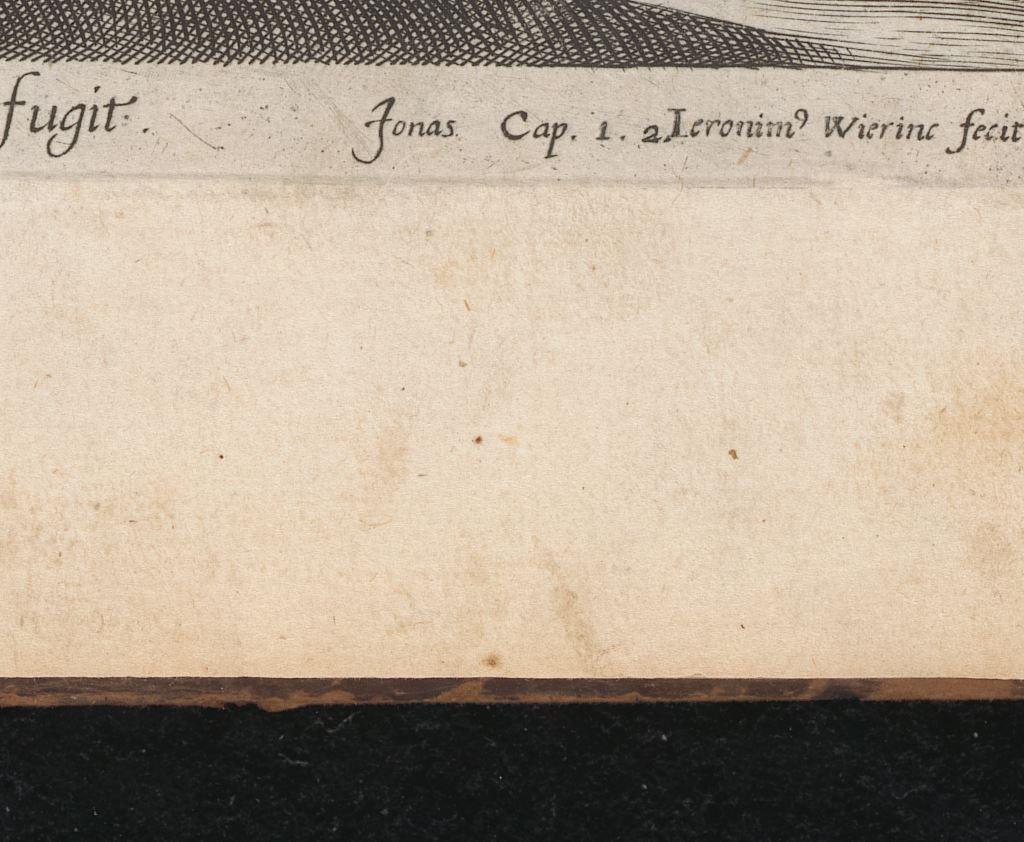 fugit. Jonas Cap. 1. 2. Ieronimꝰ Wierinc fecit